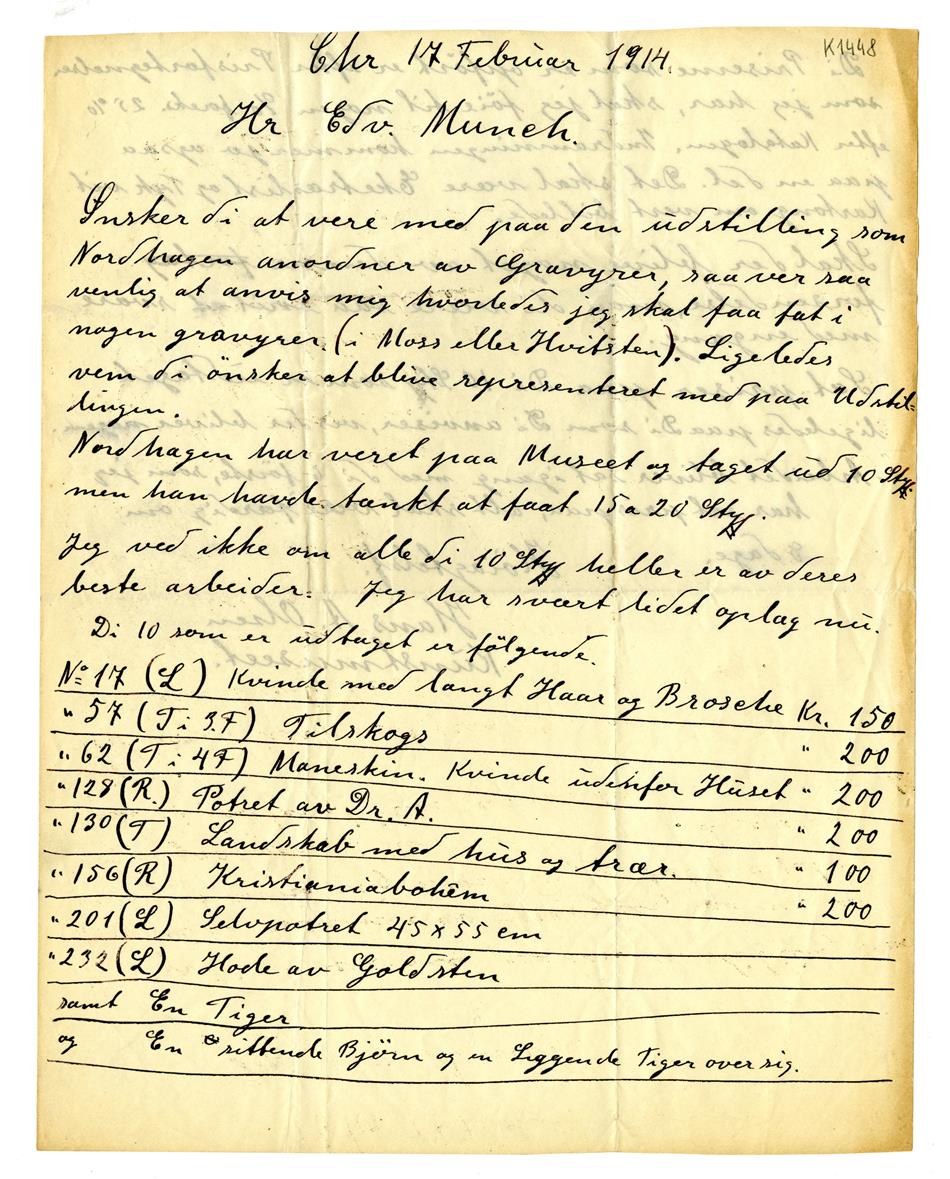 K1448
Chr 17 Februar 1914.
Hr Edv. Munch.
Önsker di at vere med paa den üdstilling som
Nordhagen anordner av Gravyrer, saa ver saa
venlig at anvis mig hvorledes jeg skal faa fat i
nogen gravyrer. (i Moss eller Hvitsten). Ligeledes
vem di önsker at blive representeret med paa Udstil-
lingen.
Nordhagen har veret paa Museet og taget üd 10 Styk
men han havde tænkt at faat 15 a 20 Styk.
Jeg ved ikke om alle di 10 Styk heller er av deres
beste arbeider. Jeg har svært lidet oplag nü.
Di 10 som er üdtaget er fölgende.
No 17 (L) Kvinde med langt Haar og Brosche Kr. 150
" 57 (T i 3.F) Tilskogs " 200
" 62 (T i 4F) Maneskin. Kvinde üdenfor Hüset " 200
" 128 (R.) Potret av Dr. A. " 200
" 130 (T) Landskab med hüs og trær. " 100
" 156 (R) Kristianiabohêm " 200
" 201 (L) Selvpotret 45 x 55 cm
" 232 (L) Hode av Goldsten
samt En Tiger
og En sittende Björn og en Liggende Tiger over sig.